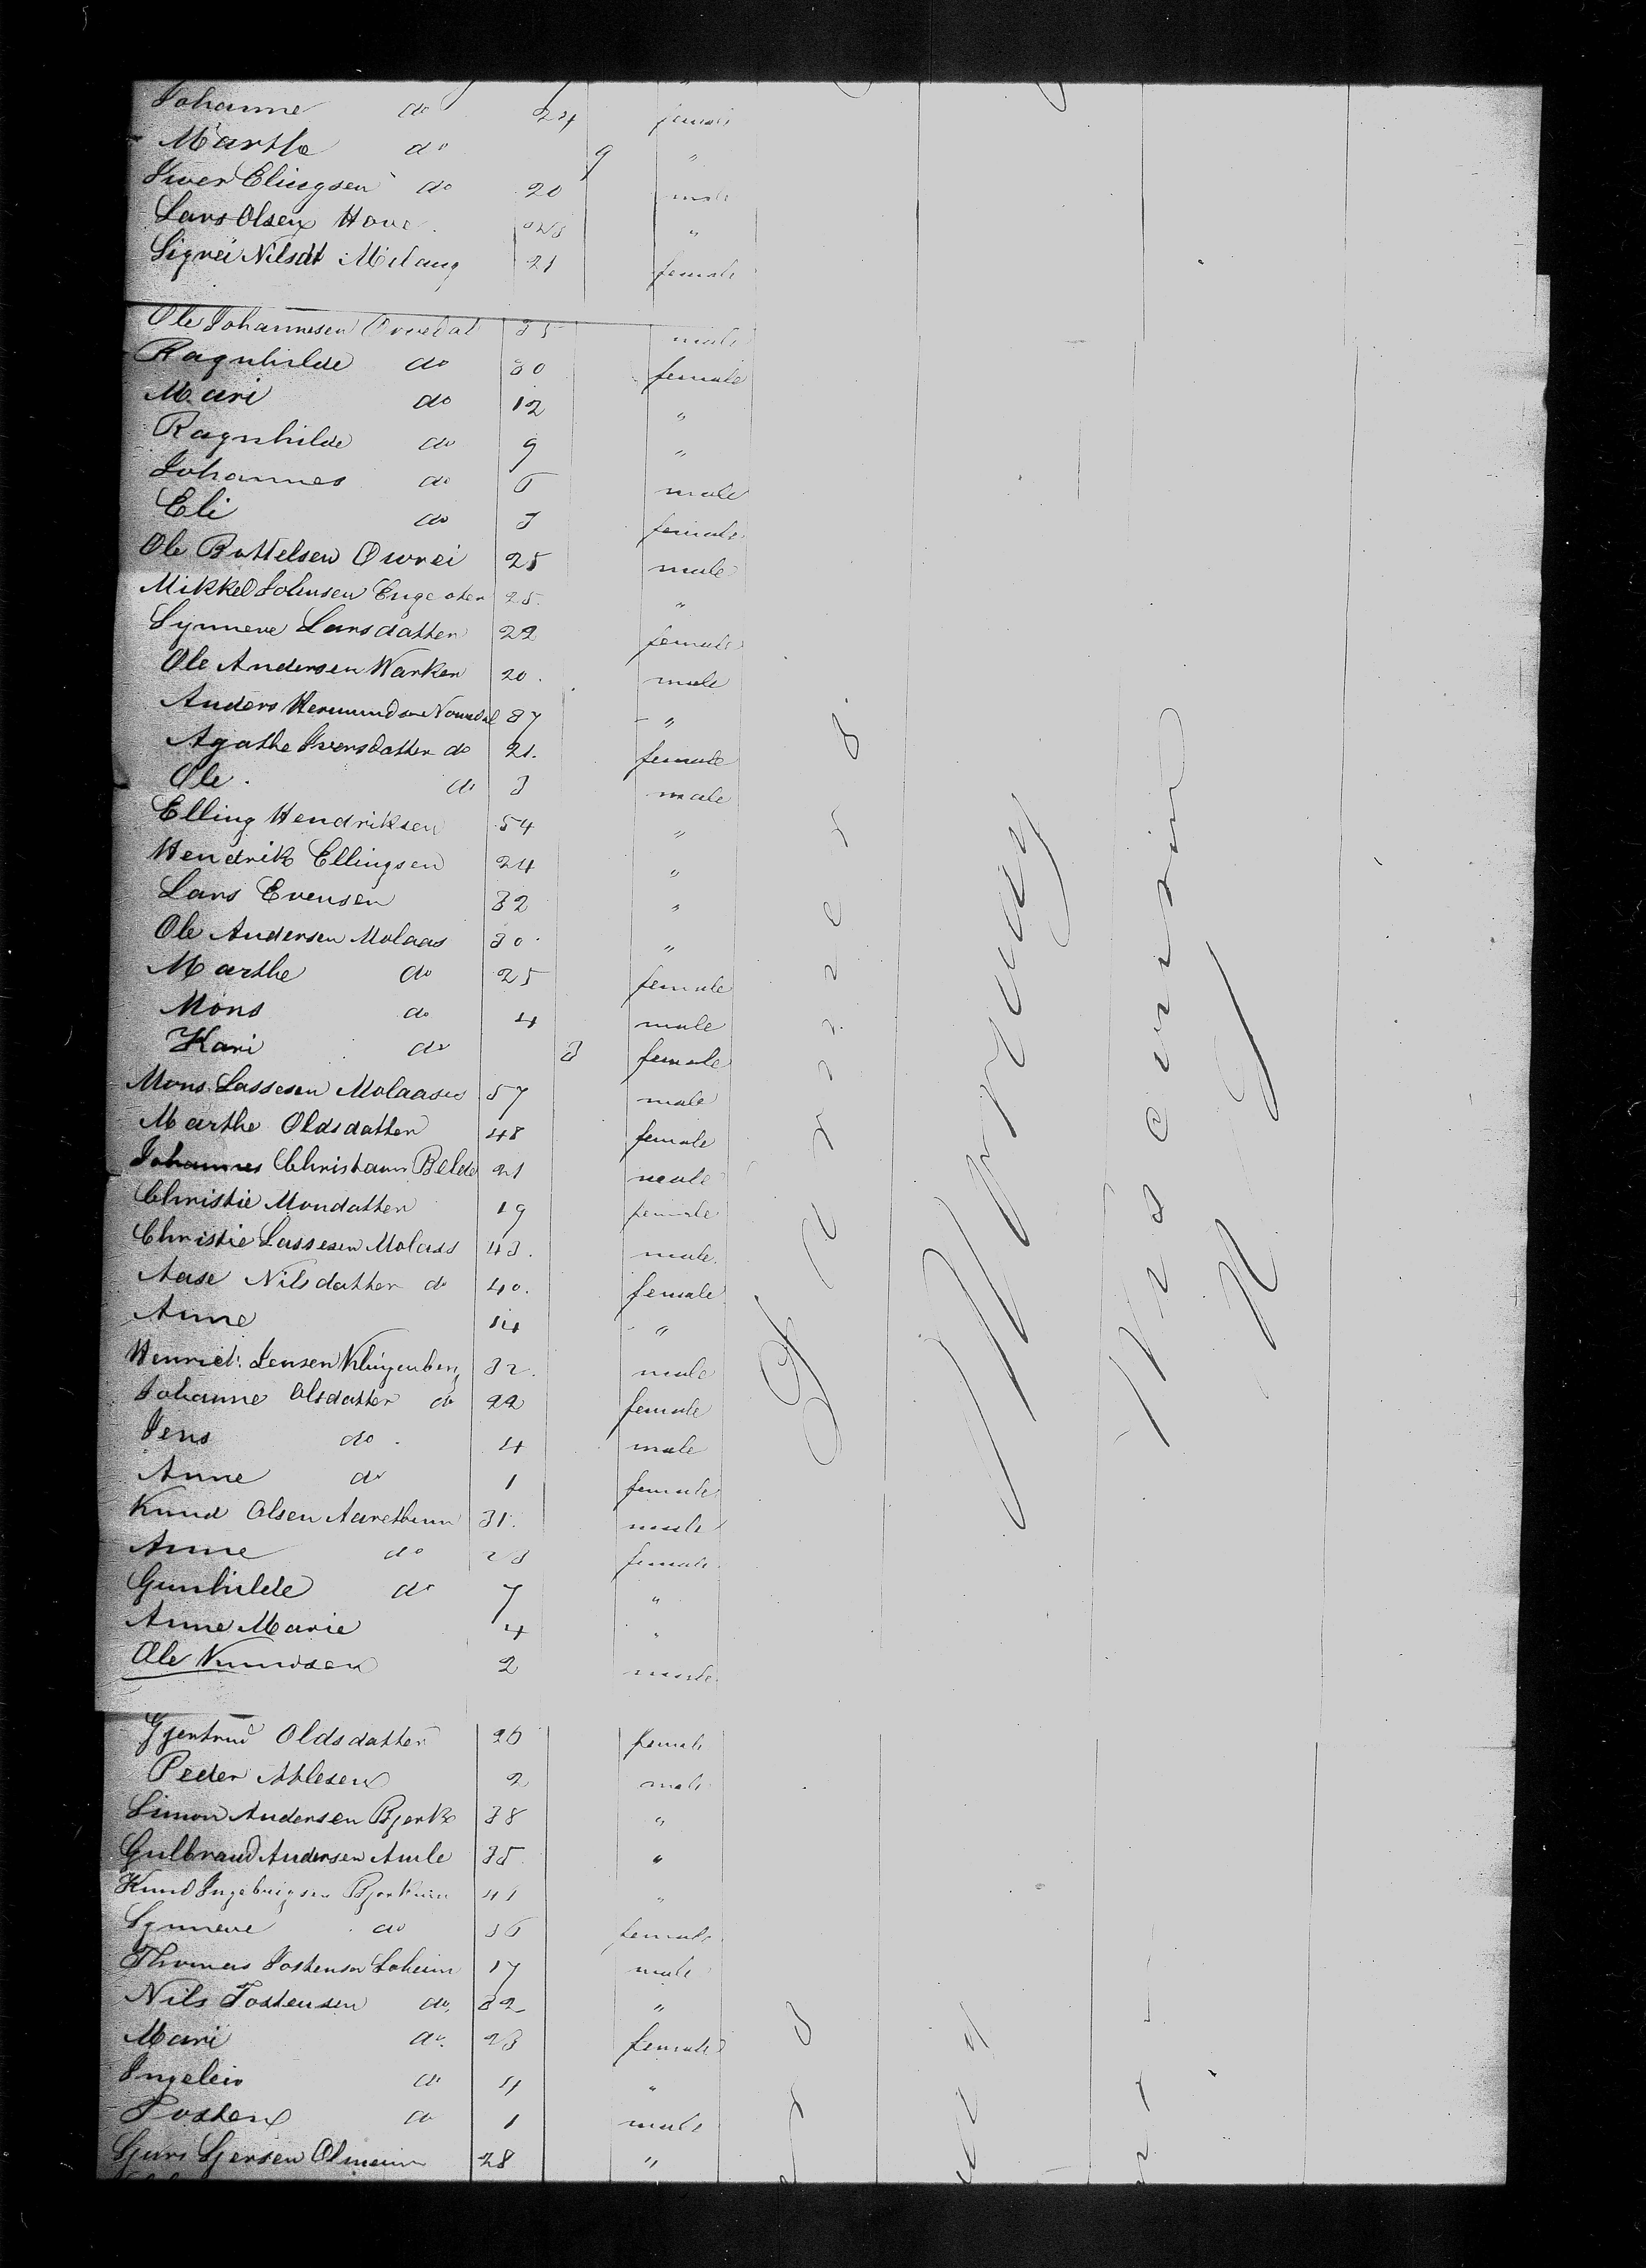 Johanne do 24 female
Marthe do 9 "
Iver Elingsen do 20 male
Lars Olsen Hove "
Signei Nilsdt Milaug 21 female
Ole Johannesen Ovredal 35 male
Ragnhilde do 30 female
Mari do 12 "
Ragnhilde do 9 "
Johannes do 6 male
Eli do 3 female
Ole Bottelsen Owrei 25 male
Mikkel Johnsen 25 "
Synneve Larsdatter 22 female
Ole Andersen Warken 20 male
Anders Hermundsen 37 "
Agathe Iversdatter do 21 female
Ole do 3 male
Elling Hendriksen 54 "
Hendrik Ellingsen 24 "
Lars Evensen 32 "
Ole Andersen Molaas 30 "
Marthe do 25 female
Mons do 4 male
Kari do 3 female
Mons Lassesen Molaas 57 male
Marthe Oldsdatter 48 female
Johannes Christians Belde 21 male
Christie Mondatter 19 female
Christie Lassesen Molaas 43 male
Aase Nilsdatter do 40 female
Anne 14 "
Henrick Jensen Klingenberg 32 male
Johanne Olsdatter do 22 female
Jens do 4 male
Anne do 1 female
Knud Olsen Aarethun 31 male
Anne do 23 female
Gunhilde do 7 "
Anne Marie 4 "
Ole Knudsen 2 male
Gjertrud Oldsdatter 26 female
Peder Atlesen 2 male
Simon Andersen Bjerk 38 "
Gulbrand Andersen Amle 35 "
Knud Ingebrigsen Bjorkum 41 "
Synneve do 36 female
Thomas Tostensen Loheim 17 male
Nils Tostensen do 32 "
Mari do 23 female
Ingeleiv do 4 "
Tosten do 1 male
Sjurs Sjersen Olmeim 28 "
Farmers
Norway
Wisconsin